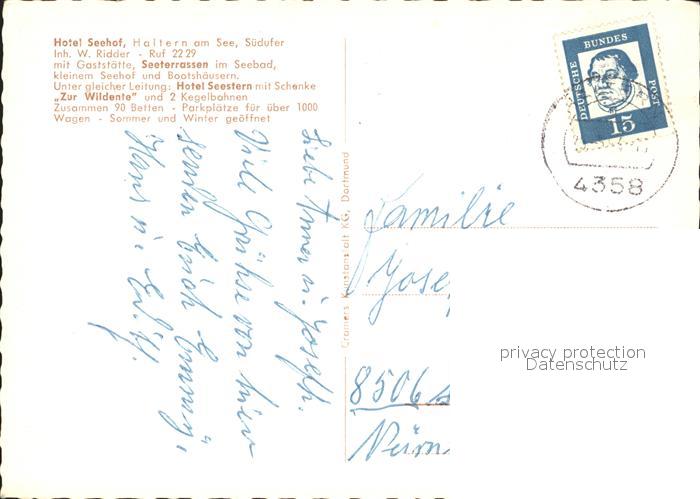 Hotel Seehof, Haltern am See, Südufer
Inh. W. Ridder - Ruf 22 29
mit Gaststätte, Seeterrassen im Seebad,
kleinem Seehof und Bootshäusern.
Unter gleicher Leitung: Hotel Seestern mit Schenke
„Zur Wildente" und 2 Kegelbahnen
Zusammen 90 Betten - Parkplätze für über 1000
Wagen - Sommer und Winter geöffnet
Liebe u. Joseph.
Viele Grüße von hier
senden Euch
Hans u.
Cramers Kunstanstalt KG, Dortmund
DEUTSCHE BUNDES POST
15
4358
Familie
Jose
8506
Nürn
privacy protection
Datenschutz